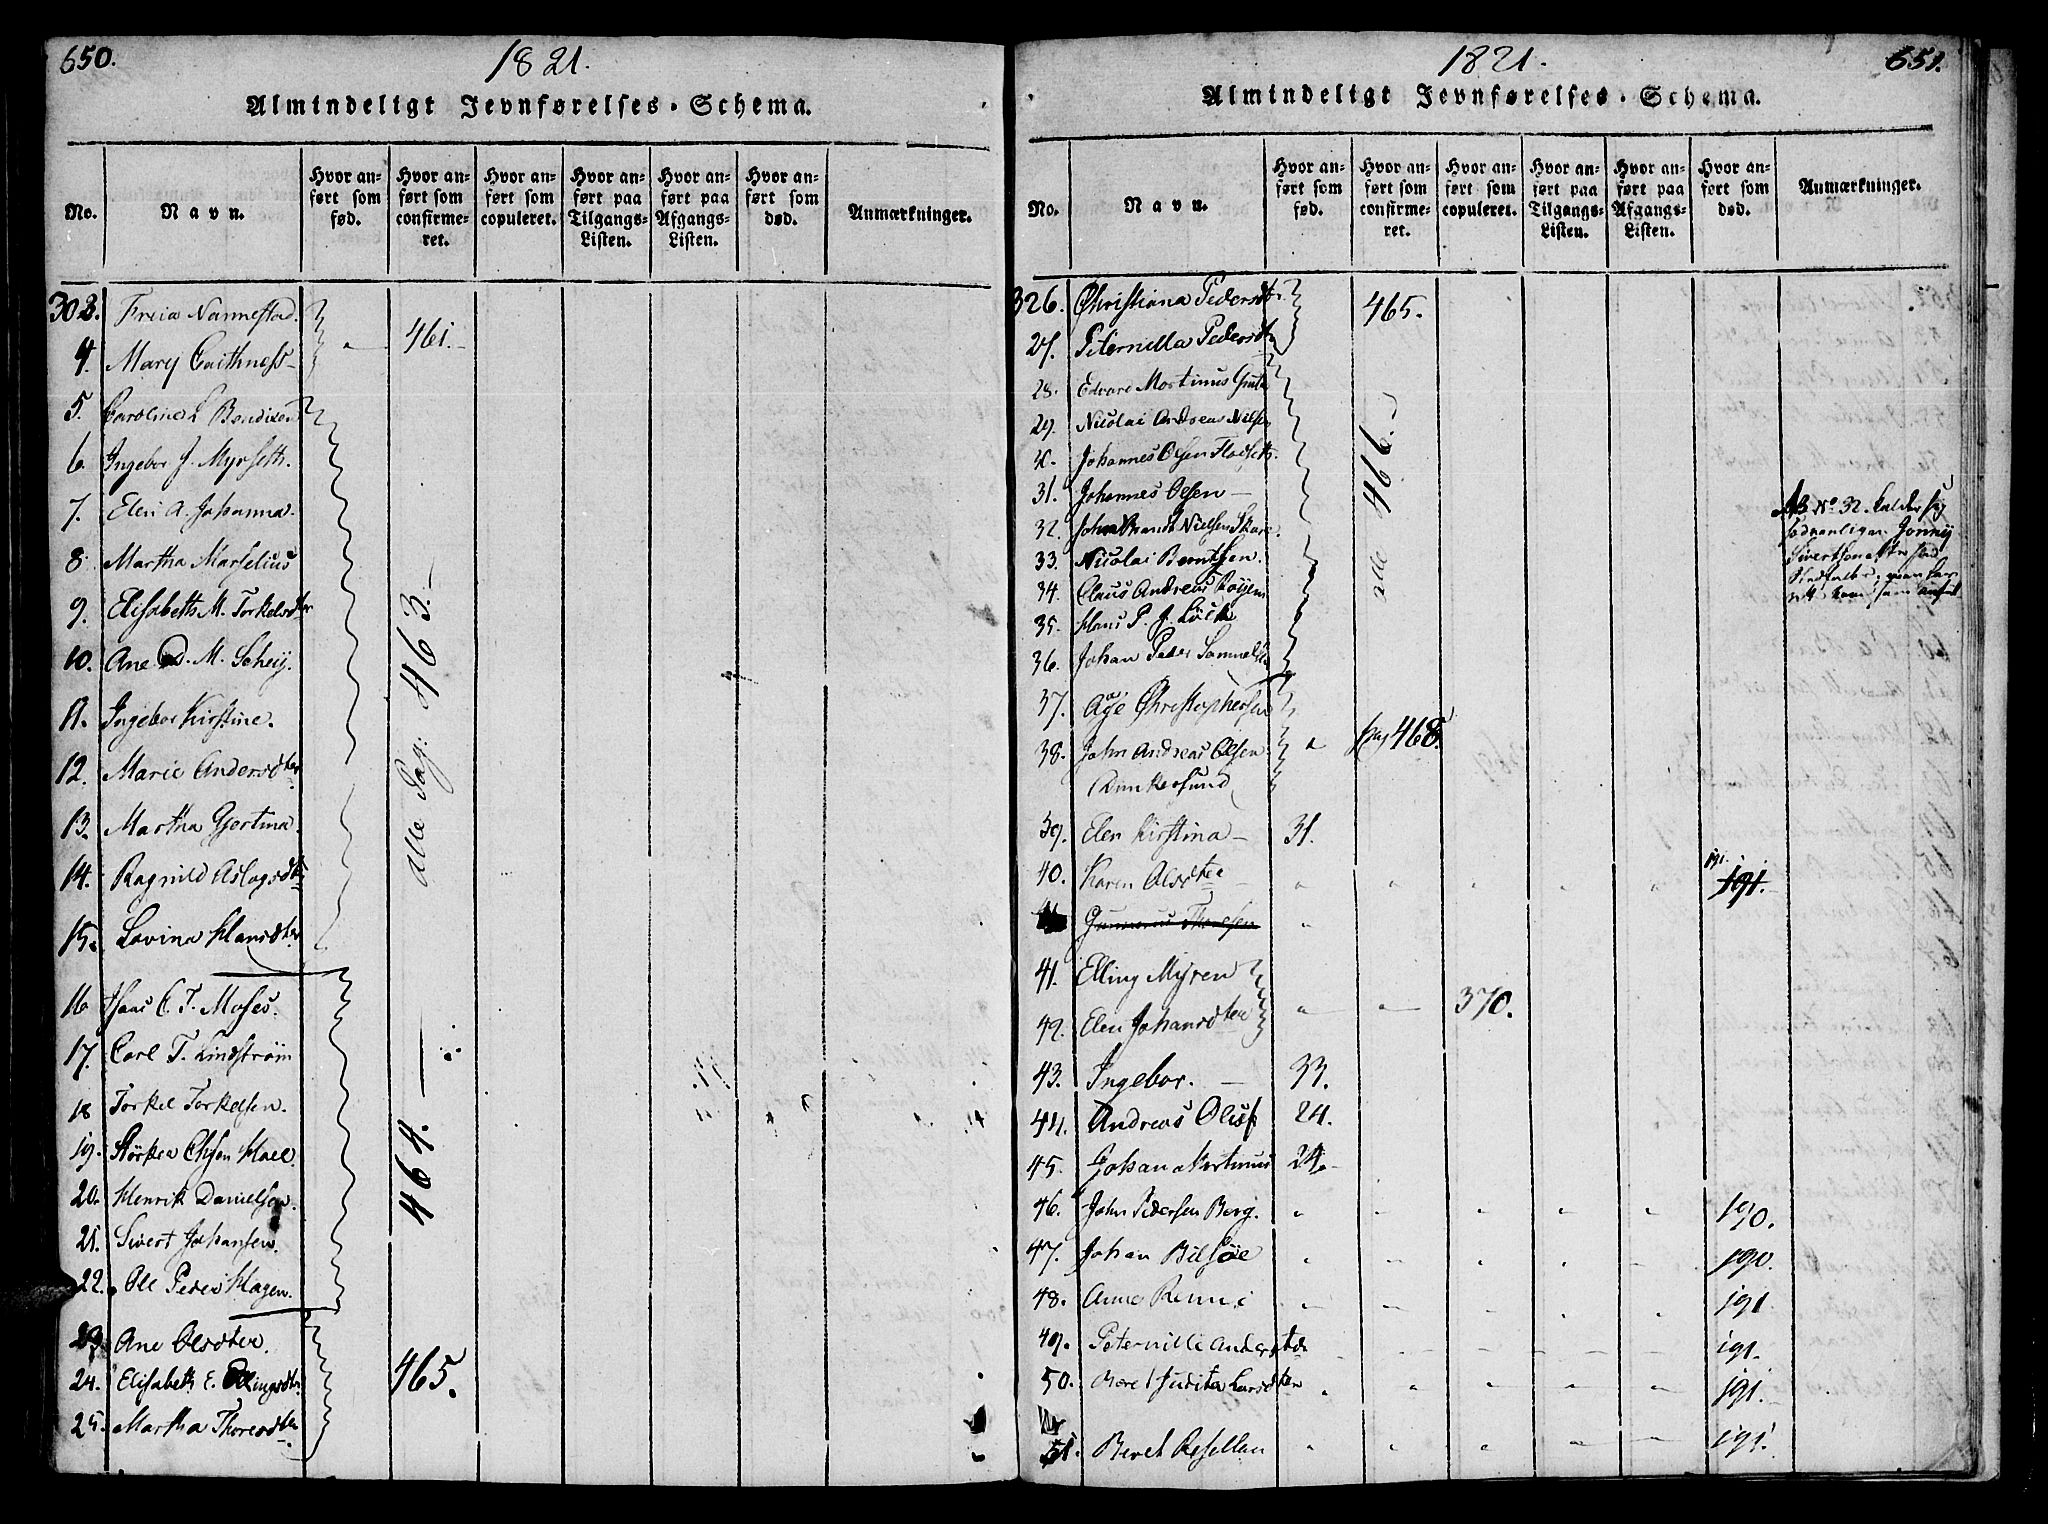 650.
1821.
Almindeligt Jevnførelses-Schema.
No.
Navn.
Hvor anført som fød.
Hvor anført som confirmeret.
Hvor anført som copuleret.
Hvor anført paa Tilgangs-Listen.
Hvor anført paa Afgangs-Listen.
Hvor anført som død.
Anmærkninger.
303. Freia Nannestad. 461.
4. Mary Caithness
5. Carolina L Bendixen
6. Ingebor J. Myrseth.
7. Elen A. Johanna.
8. Martha Marselius
9. Elisabeth M. Torkelsdter
10. Ane D. M. Schey.
alle Pag: 463.
11. Ingebor Kirstine.
12. Marie Andersdter
13. Martha Gjertina.
14. Ragnild Aslagsdtr
15. Lovina Hansdter
16 Hans C. T. Moses.
17. Carl T. Lindstrøm
18 Torkel Torkelsen.
19. Størker Olsen Hall.
464.
20. Henrik Danielsen.
21. Sivert Johansen.
22. Ole Peder Hagen.
23. Ane Olsdter.
24. Elisabeth E. Ellingsdtr. 465.
25. Martha Thoresdter
651.
1821.
Almindeligt Jevnførelses-Schema.
No.
Navn.
Hvor anført som fød.
Hvor anført som confirmeret.
Hvor anført som copuleret.
Hvor anført paa Tilgangs-Listen.
Hvor anført paa Afgangs-Listen.
Hvor anført som død.
Anmærkninger.
326. Christiana Pedersdtr. 465.
27. Peternilla Pedersdtr
28. Edvard Martinus
29. Nicolai Andreas Nilsen
Johannes Olsen Fladseth.
alle 466.
31. Johannes Olsen —
32. Nielsen Skare. NB No 32. kalder sig
33. Nicolai Berntsen. Jonny
34. Claus Andreas
35. Hans P. J. Lück
36. Johan Peder Samuelsen
37. Aage Christophersen
38. John Andreas Olsen pag 468.
39. Elen Kirstina — 31.
40. Karen Olsdter — 191. 191.
Gunnerus Thoresen
41. Elling Myren
42. Elen Johansdter 370.
43. Ingebor. — 33.
44. Andreas Oluf 24.
45. Johan Martinus 24.
46. John Pedersen Berg. 190.
47. Johan Bilsøe 190.
48. Anne 191.
49. Peternille Andersdtr 191.
50. Judita Larsdter 191.
51. Beret 191.